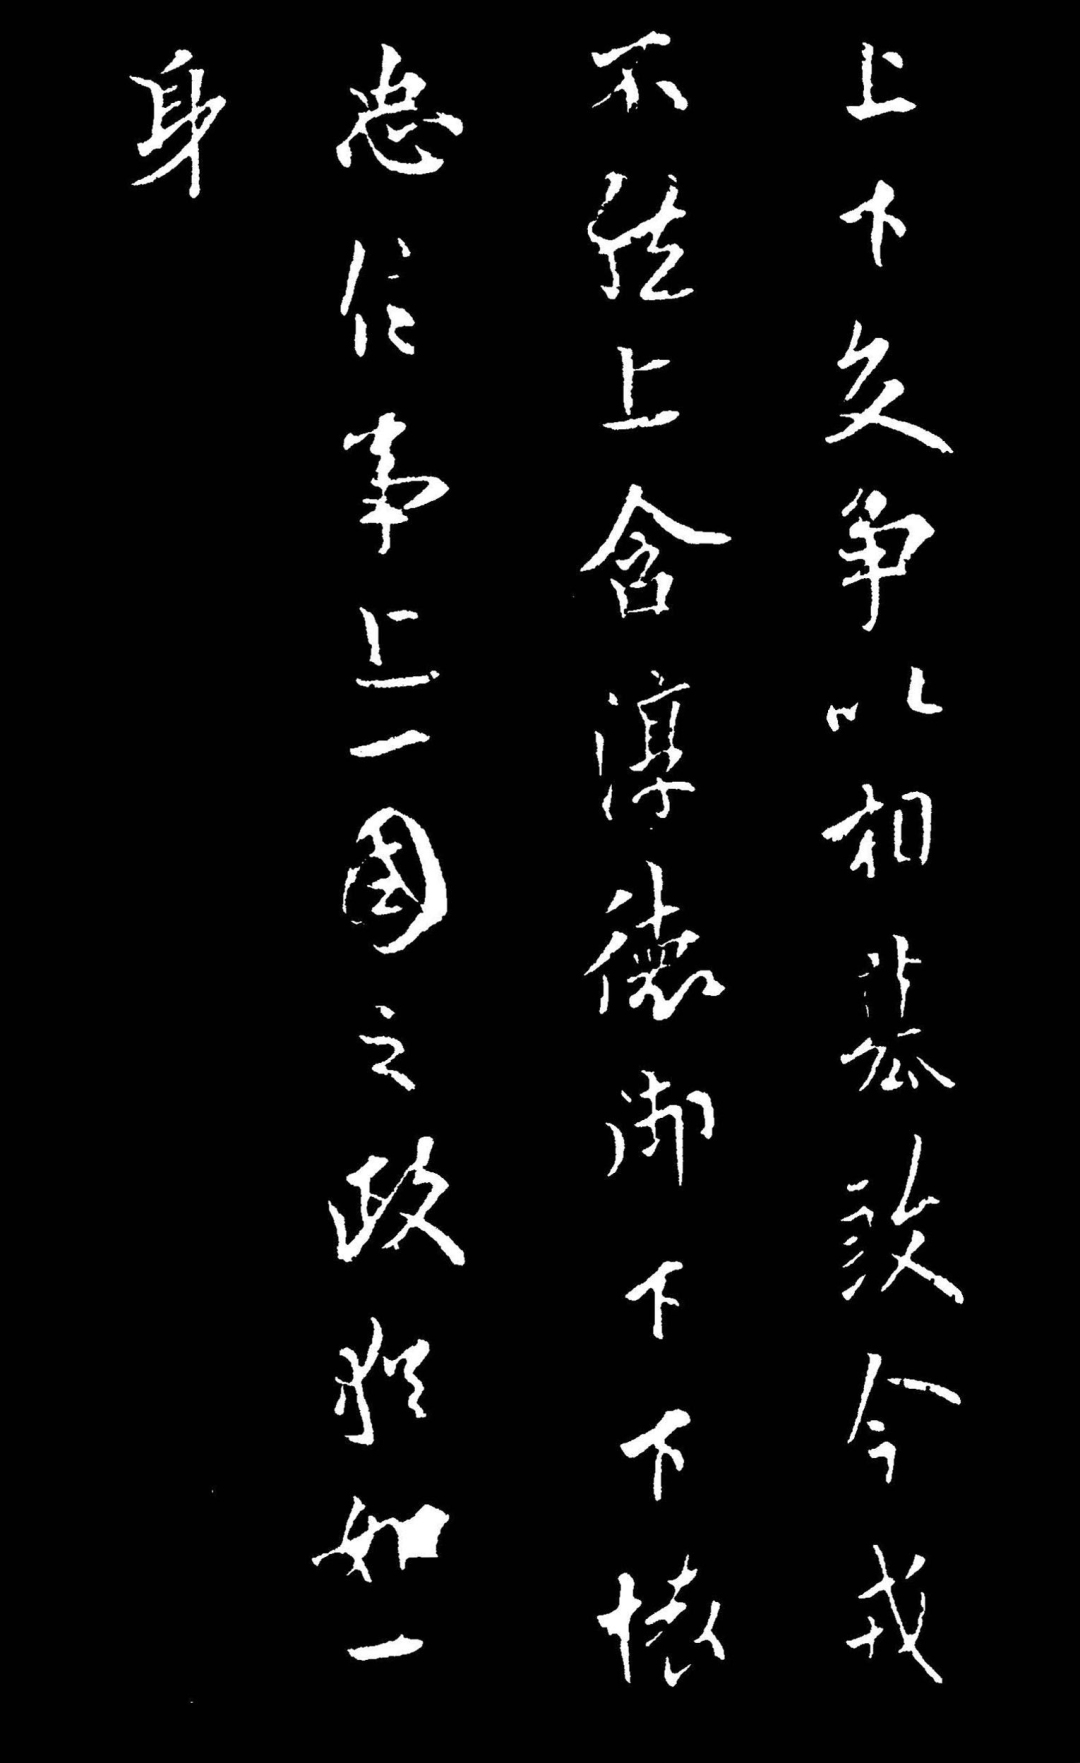 上下交争以相篡殺今戎
不然上含淳德御下下懷
忠信事上一國之政猶如一
身